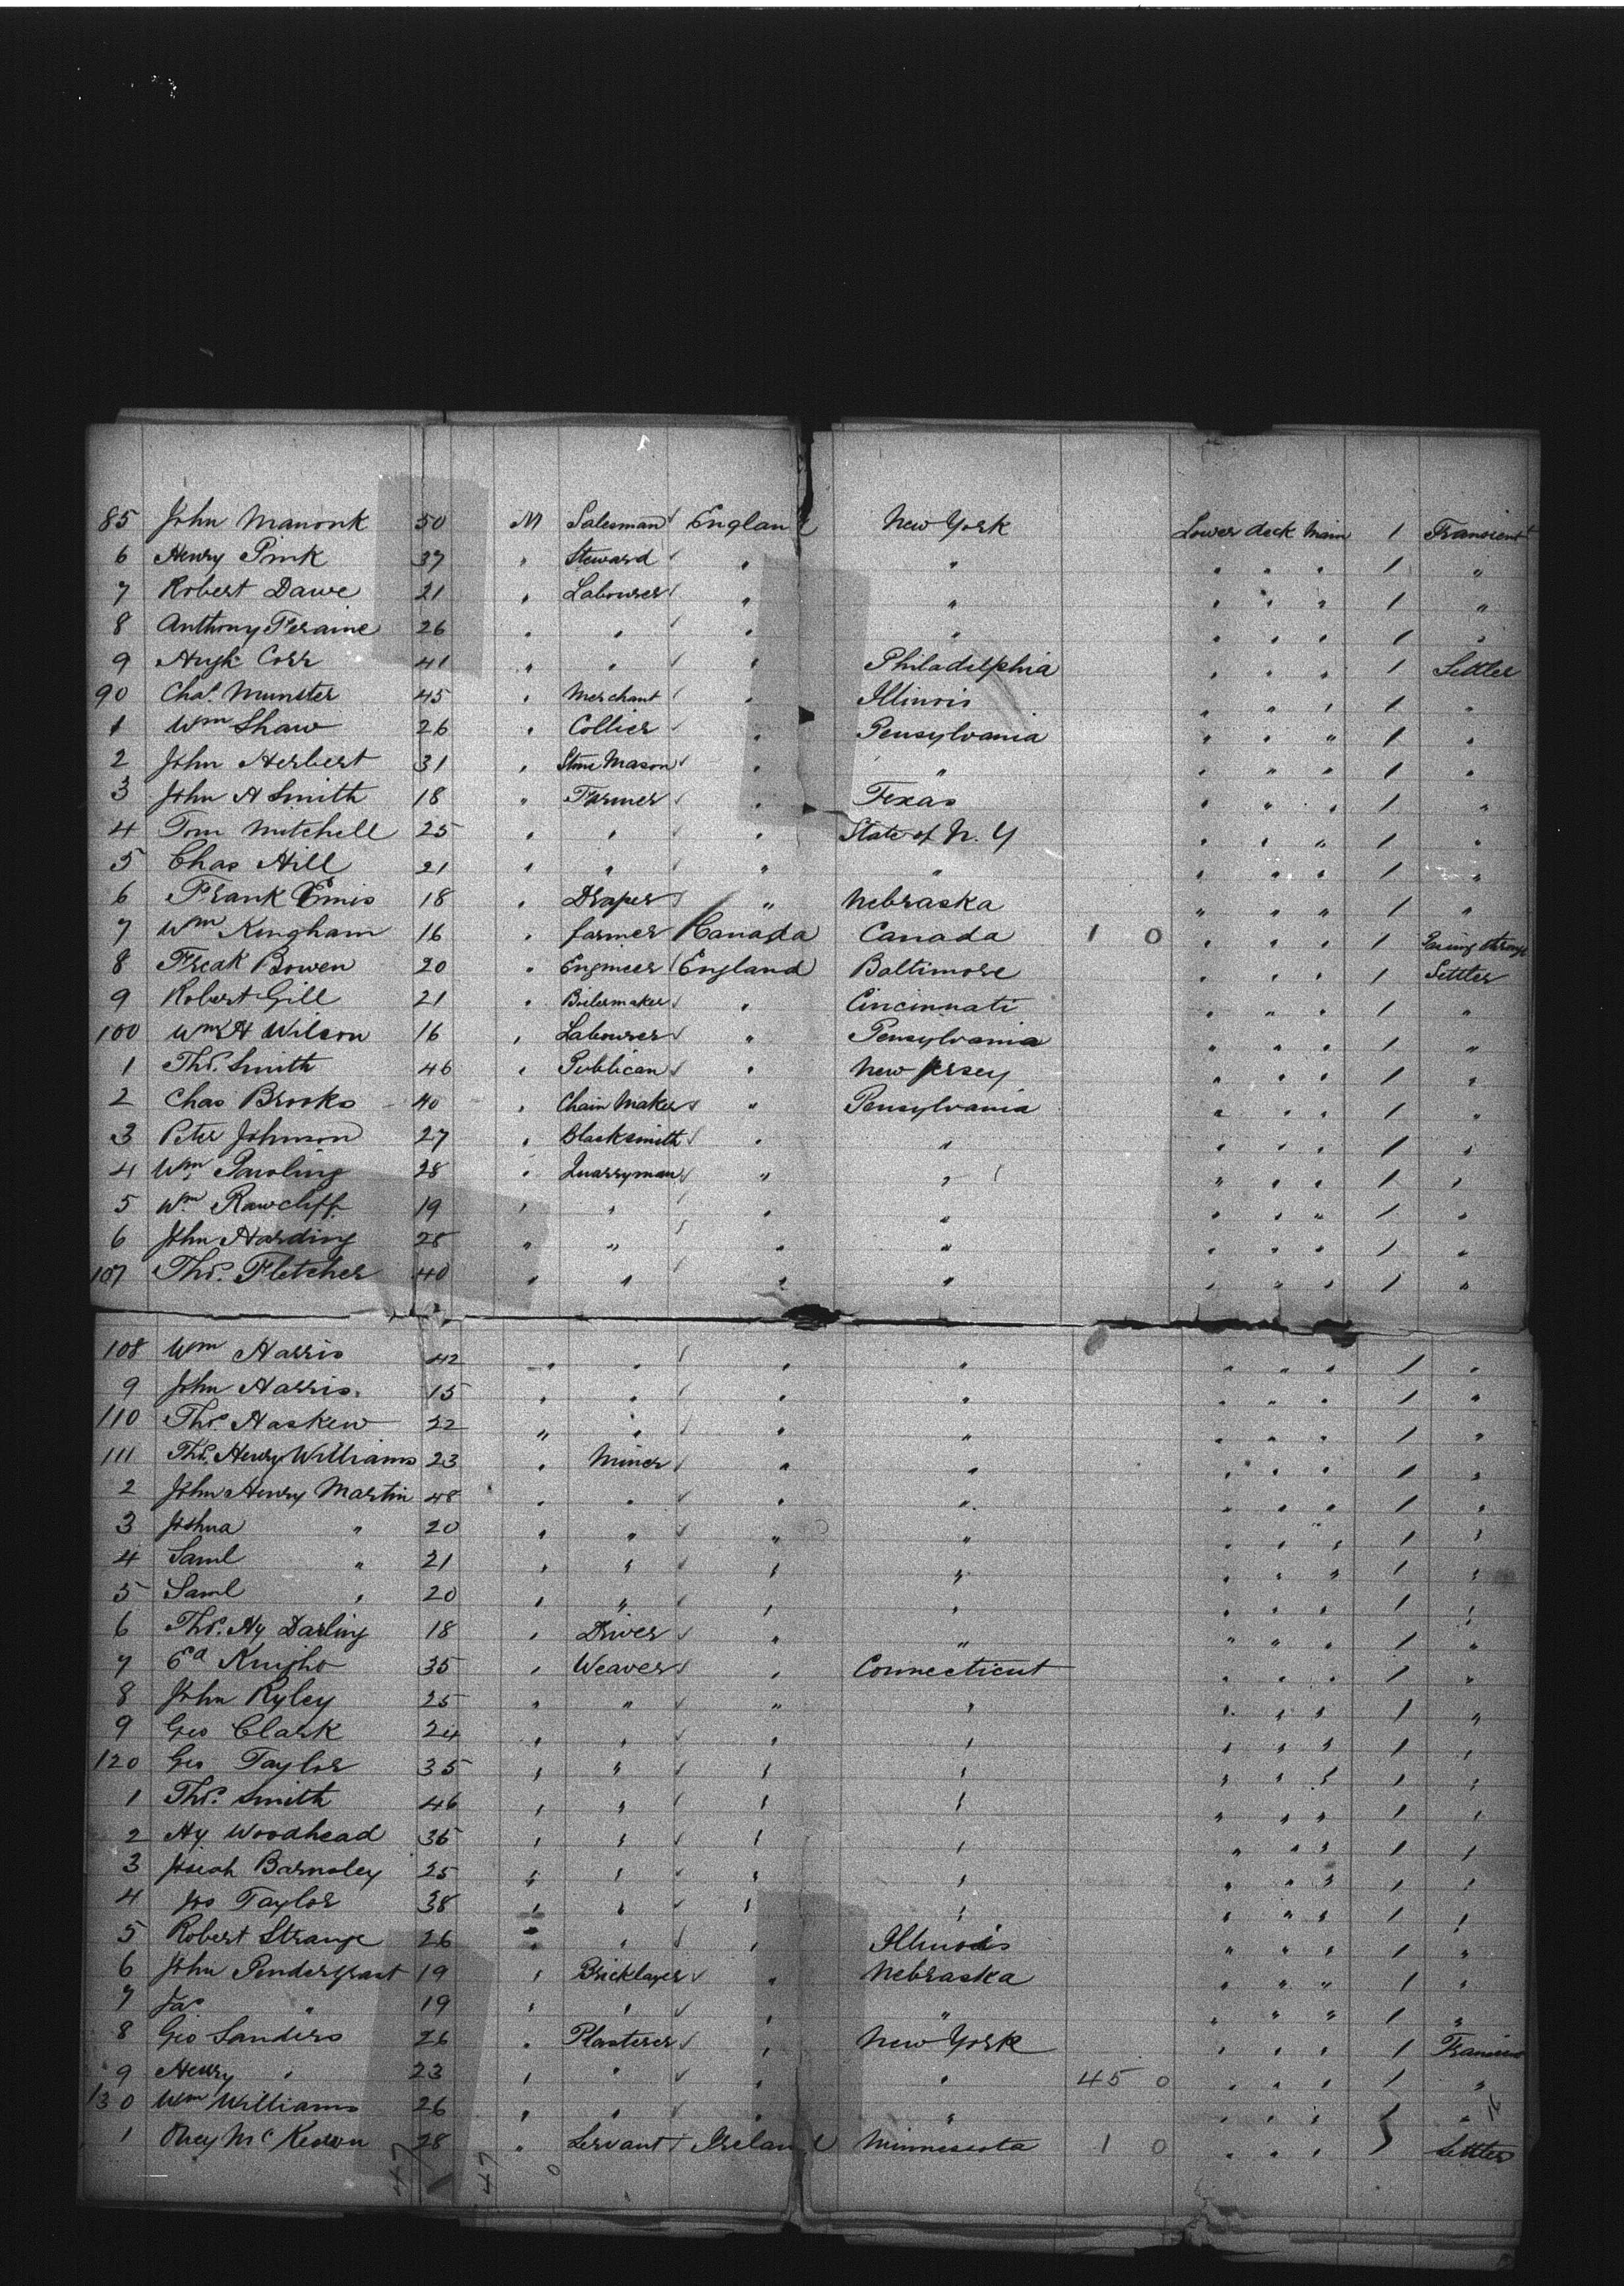 85 John Manonk 50 M Salesman England New York Lower deck Main 1 Transient
6 Henry Pink 37 " Steward " " " " " 1 "
7 Robert Dawe 21 " Labourer " " " " " 1 "
8 Anthony Feraine 26 " " " " " " " 1 "
9 Hugh Corr 41 " " " Philadelphia " " " 1 Settler
90 Chas. Munster 45 " Merchant " Illinois " " " 1 "
1 Wm Shaw 26 " Collier " Pensylvania " " " 1 "
2 John Herbert 31 " Stone Mason " " " " " 1 "
3 John A Smith 18 " Farmer " Texas " " " 1 "
4 Tom Mitchell 25 " " " State of N. Y " " " 1 "
5 Chas Hill 21 " " " " " " " 1 "
6 Frank Emis 18 " Draper " Nebraska " " " 1 "
7 Wm Kingham 16 " farmer Canada Canada 1 0 " " " 1 Going through
8 Freak Bowen 20 " Engineer England Baltimore " " " 1 Settler
9 Robert Gill 21 " Boilermaker " Cincinnati " " " 1 "
100 Wm H Wilson 16 " Labourer " Pensylvania " " " 1 "
1 Thos. Smith 46 " Publican " New Jersey " " " 1 "
2 Chas Brooks 40 " Chain Maker " Pensylvania " " " 1 "
3 Peter Johnson 27 " Blacksmith " " " " " 1 "
4 Wm Pawling 28 " Quarryman " " " " " 1 "
5 Wm Rawcliff 19 " " " " " " " 1 "
6 John Harding 28 " " " " " " " 1 "
107 Thos. Fletcher 40 " " " " " " " 1 "
108 Wm Harris 42 " " " " " " " 1 "
9 John Harris. 15 " " " " " " " 1 "
110 Thos Haskew 22 " " " " " " " 1 "
111 Thos. Henry Williams 23 " Miner " " " " " 1 "
2 John Henry Martin 48 " " " " " " " 1 "
3 Joshua " 20 " " " " " " " 1 "
4 Saml " 21 " " " " " " " 1 "
5 Saml " 20 " " " " " " " 1 "
6 Thos. Hy Darling 18 " Driver " " " " " 1 "
7 Ed Knight 35 " Weaver " Connecticut " " " 1 "
8 John Ryley 25 " " " " " " " 1 "
9 Geo Clark 24 " " " " " " " 1 "
120 Geo Taylor 35 " " " " " " " 1 "
1 Thos. Smith 46 " " " " " " " 1 "
2 Hy Woodhead 36 " " " " " " " 1 "
3 Josiah Barnsley 25 " " " " " " " 1 "
4 Jos Taylor 38 " " " " " " " 1 "
5 Robert Strange 26 " " " Illinois " " " 1 "
6 John Pendergrast 19 " Bricklayer " Nebraska " " " 1 "
7 Jas " 19 " " " " " " " 1 "
8 Geo Sanders 26 " Plasterer " New York " " " 1 Transient
9 Henry " 23 " " " " 45 0 " " " 1 "
130 Wm Williams 26 " " " " " " " 1 "
1 McKeown 28 " Servant Ireland Minnesota 1 0 " " " 1 Settler
47 47 0